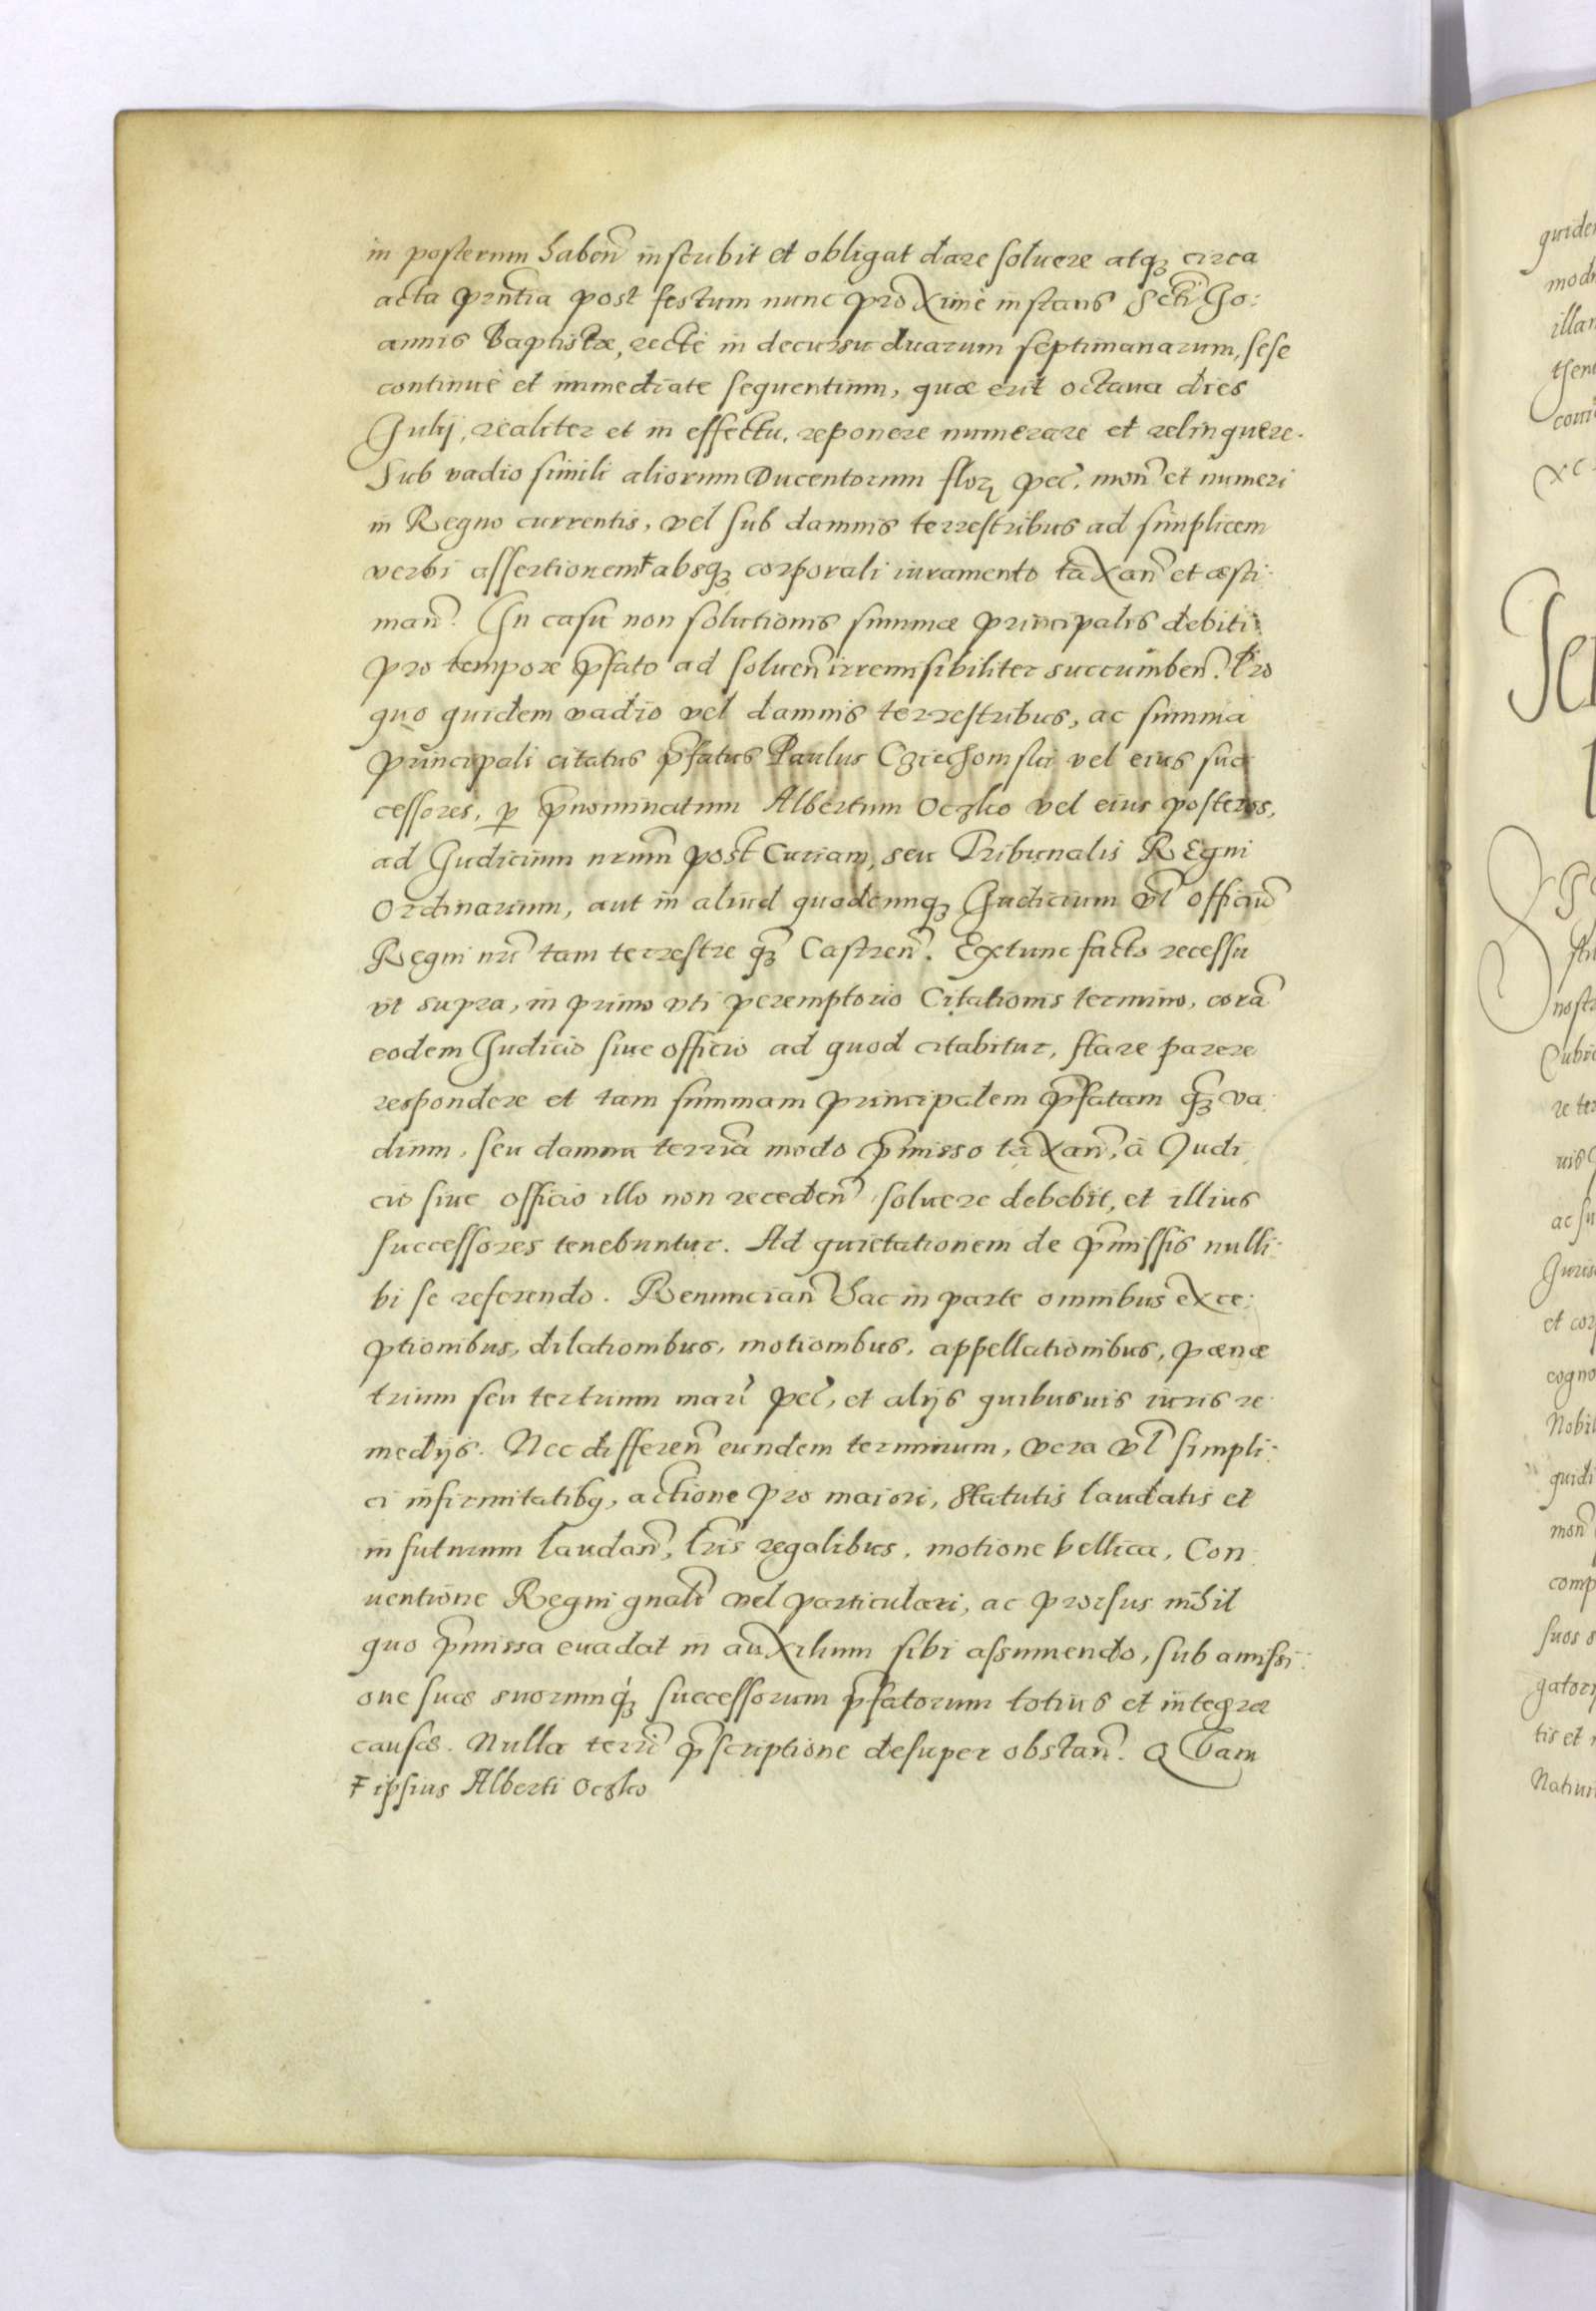 in posterum haben̄ inscribit et obligat dare soluere atq₃ circa
acta pr̄ntia post festum nunc proxime instans Scti Jo:
annis Baptistæ, recte in decursu duarum septimanarum, sese
continuè et immediate sequentium, quæ erit octaua dies
Julij, realiter et in effectu, reponere numerare et relinquere.
Sub vadio simili aliorum Ducentorum flor̄ pec̄. mon̄ et numeri
in Regno currentis, vel sub damnis terrestribus ad simplicem
verbi assertionem Ŧ absq₃ corporali iuramento taxan̄ et æsti:
man̄. In casu non solutionis summæ principalis debiti
pro tempore p̄fato ad soluen̄ irremisibiliter succumben̄. Pro
quo quidem vadio vel damnis terrestribus, ac summa
principali citatus p̄fatus Paulus Cziechomski vel eius suc
cessores, p̱ p̄nominatum Albertum Oczko vel eius posteros,
ad Judicium nrum̄ post Curiam, seu Tribunalis REgni
Ordinarium, aut in aliud quodcunq₃ Judicium vl̄ officiū
Regni nrī tam terrestre q̄₃ Castren̄. Extunc facto recessu
vt supra, in primo vti peremptorio Citationis termino, corā
eodem Judicio siue officio ad quod citabitur, stare parere
respondere et tam summam principalem p̄fatam q̄₃ va:
dium, seu damna terr̄ia modo p̄misso taxan̄, à Judi
cio siue officio illo non receden̄ soluere debebit, et illius
successores tenebuntur. Ad quietationem de p̄missis nulli:
bi se referendo. Renuncian̄ hac in parte omnibus exce:
ptionibus, dilationibus, motionibus, appellationibus, pœnæ
trium seu tertium mar̄ pec̄, et alijs quibusuis iuris re
medijs. Nec differen̄ eundem terminum, vera vl̄ simpli:
ci infirmitatibꝰ, actione pro maiori, Statutis laudatis et
in futurum laudan̄, lr̄is regalibus, motione bellica, Con:
uentione Regni gnalī vel particulari, ac prorsus nihil
quo p̄missa euadat in auxilium sibi assumendo, sub amissi:
one suæ suorumq́₃ successorum p̄fatorum totius et integræ
causæ. Nulla terr̄i p̄scriptione desuper obstan̄. QUam
Ŧ ipsius Alberti Oczko